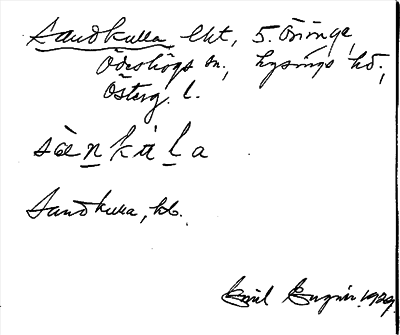 Sandkulla lht, S. Öringe,
Ödeshögs sn., Lysings hd.,
Österg. l.
sàǹkúla
Sandkulla, hb.
Emil 1929